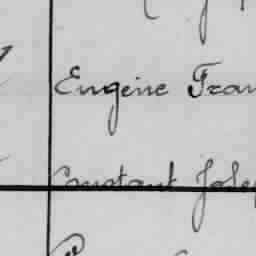 Eugène Fran
Constant Jose